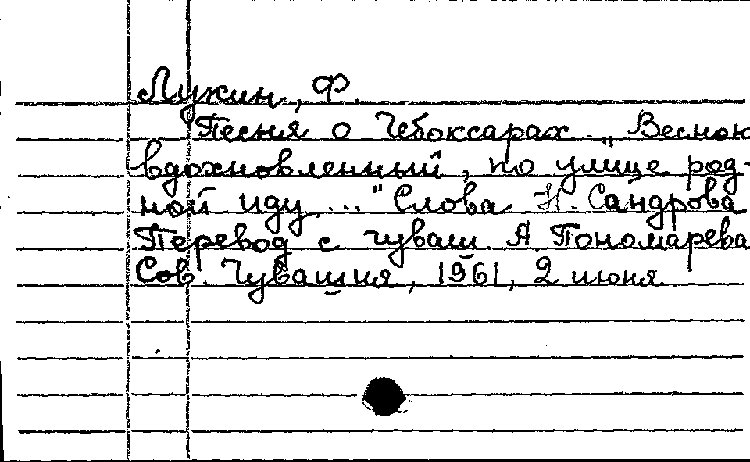 Лукин, Ф.
Песня о Чебоксарах. „Весною
вдохновленный, по улице род-
ной иду..." Слова Н. Сандрова
Перевод с чуваш. А. Пономарева
Сов. Чувашия, 1961, 2 июня.